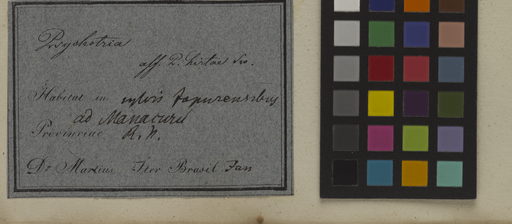 Psychotria
aff. P. hirtae Sw.
Habitat in sylvis Japurensibus
ad Manacuru
Provinciae R. N.
Dr Martius Iter Brasil Jan